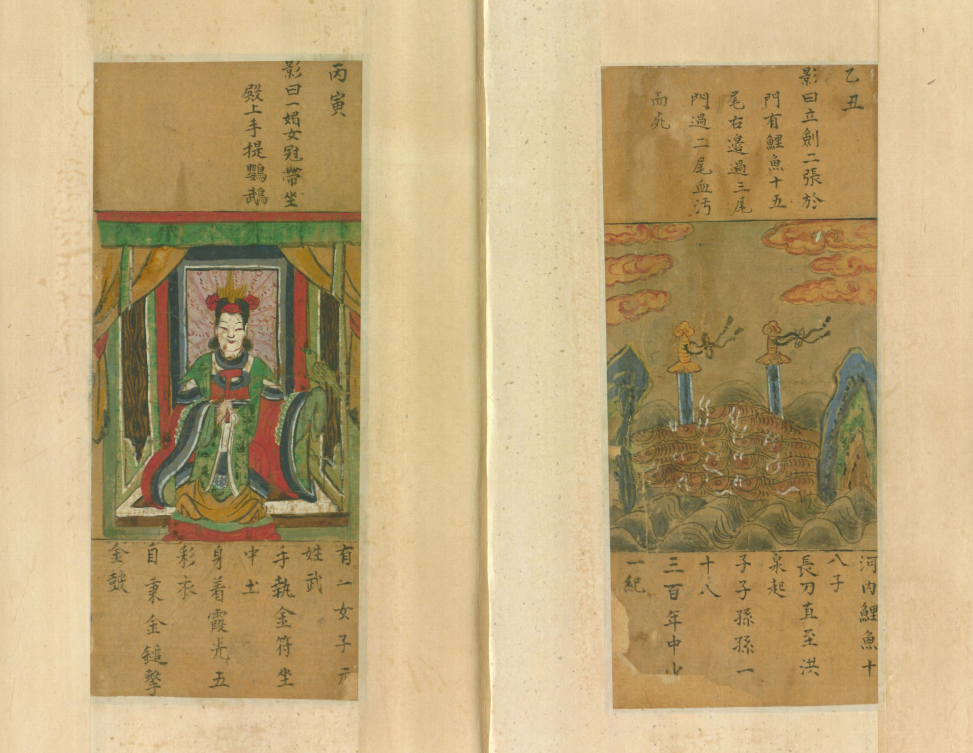 乙丑
影曰立劍二張於
門有鯉魚十五
尾右邊過三尾
門過二尾血污
而死
河內鯉魚十
八子
長刀直至洪
泉起
子子孫孫一
十八
三百年中少
一紀
丙寅
影曰一媚女冠帶坐
殿上手提鸚鵡
有一女子
姓武
手執金符坐
中土
身着霞光五
彩衣
自秉金鎚擊
金